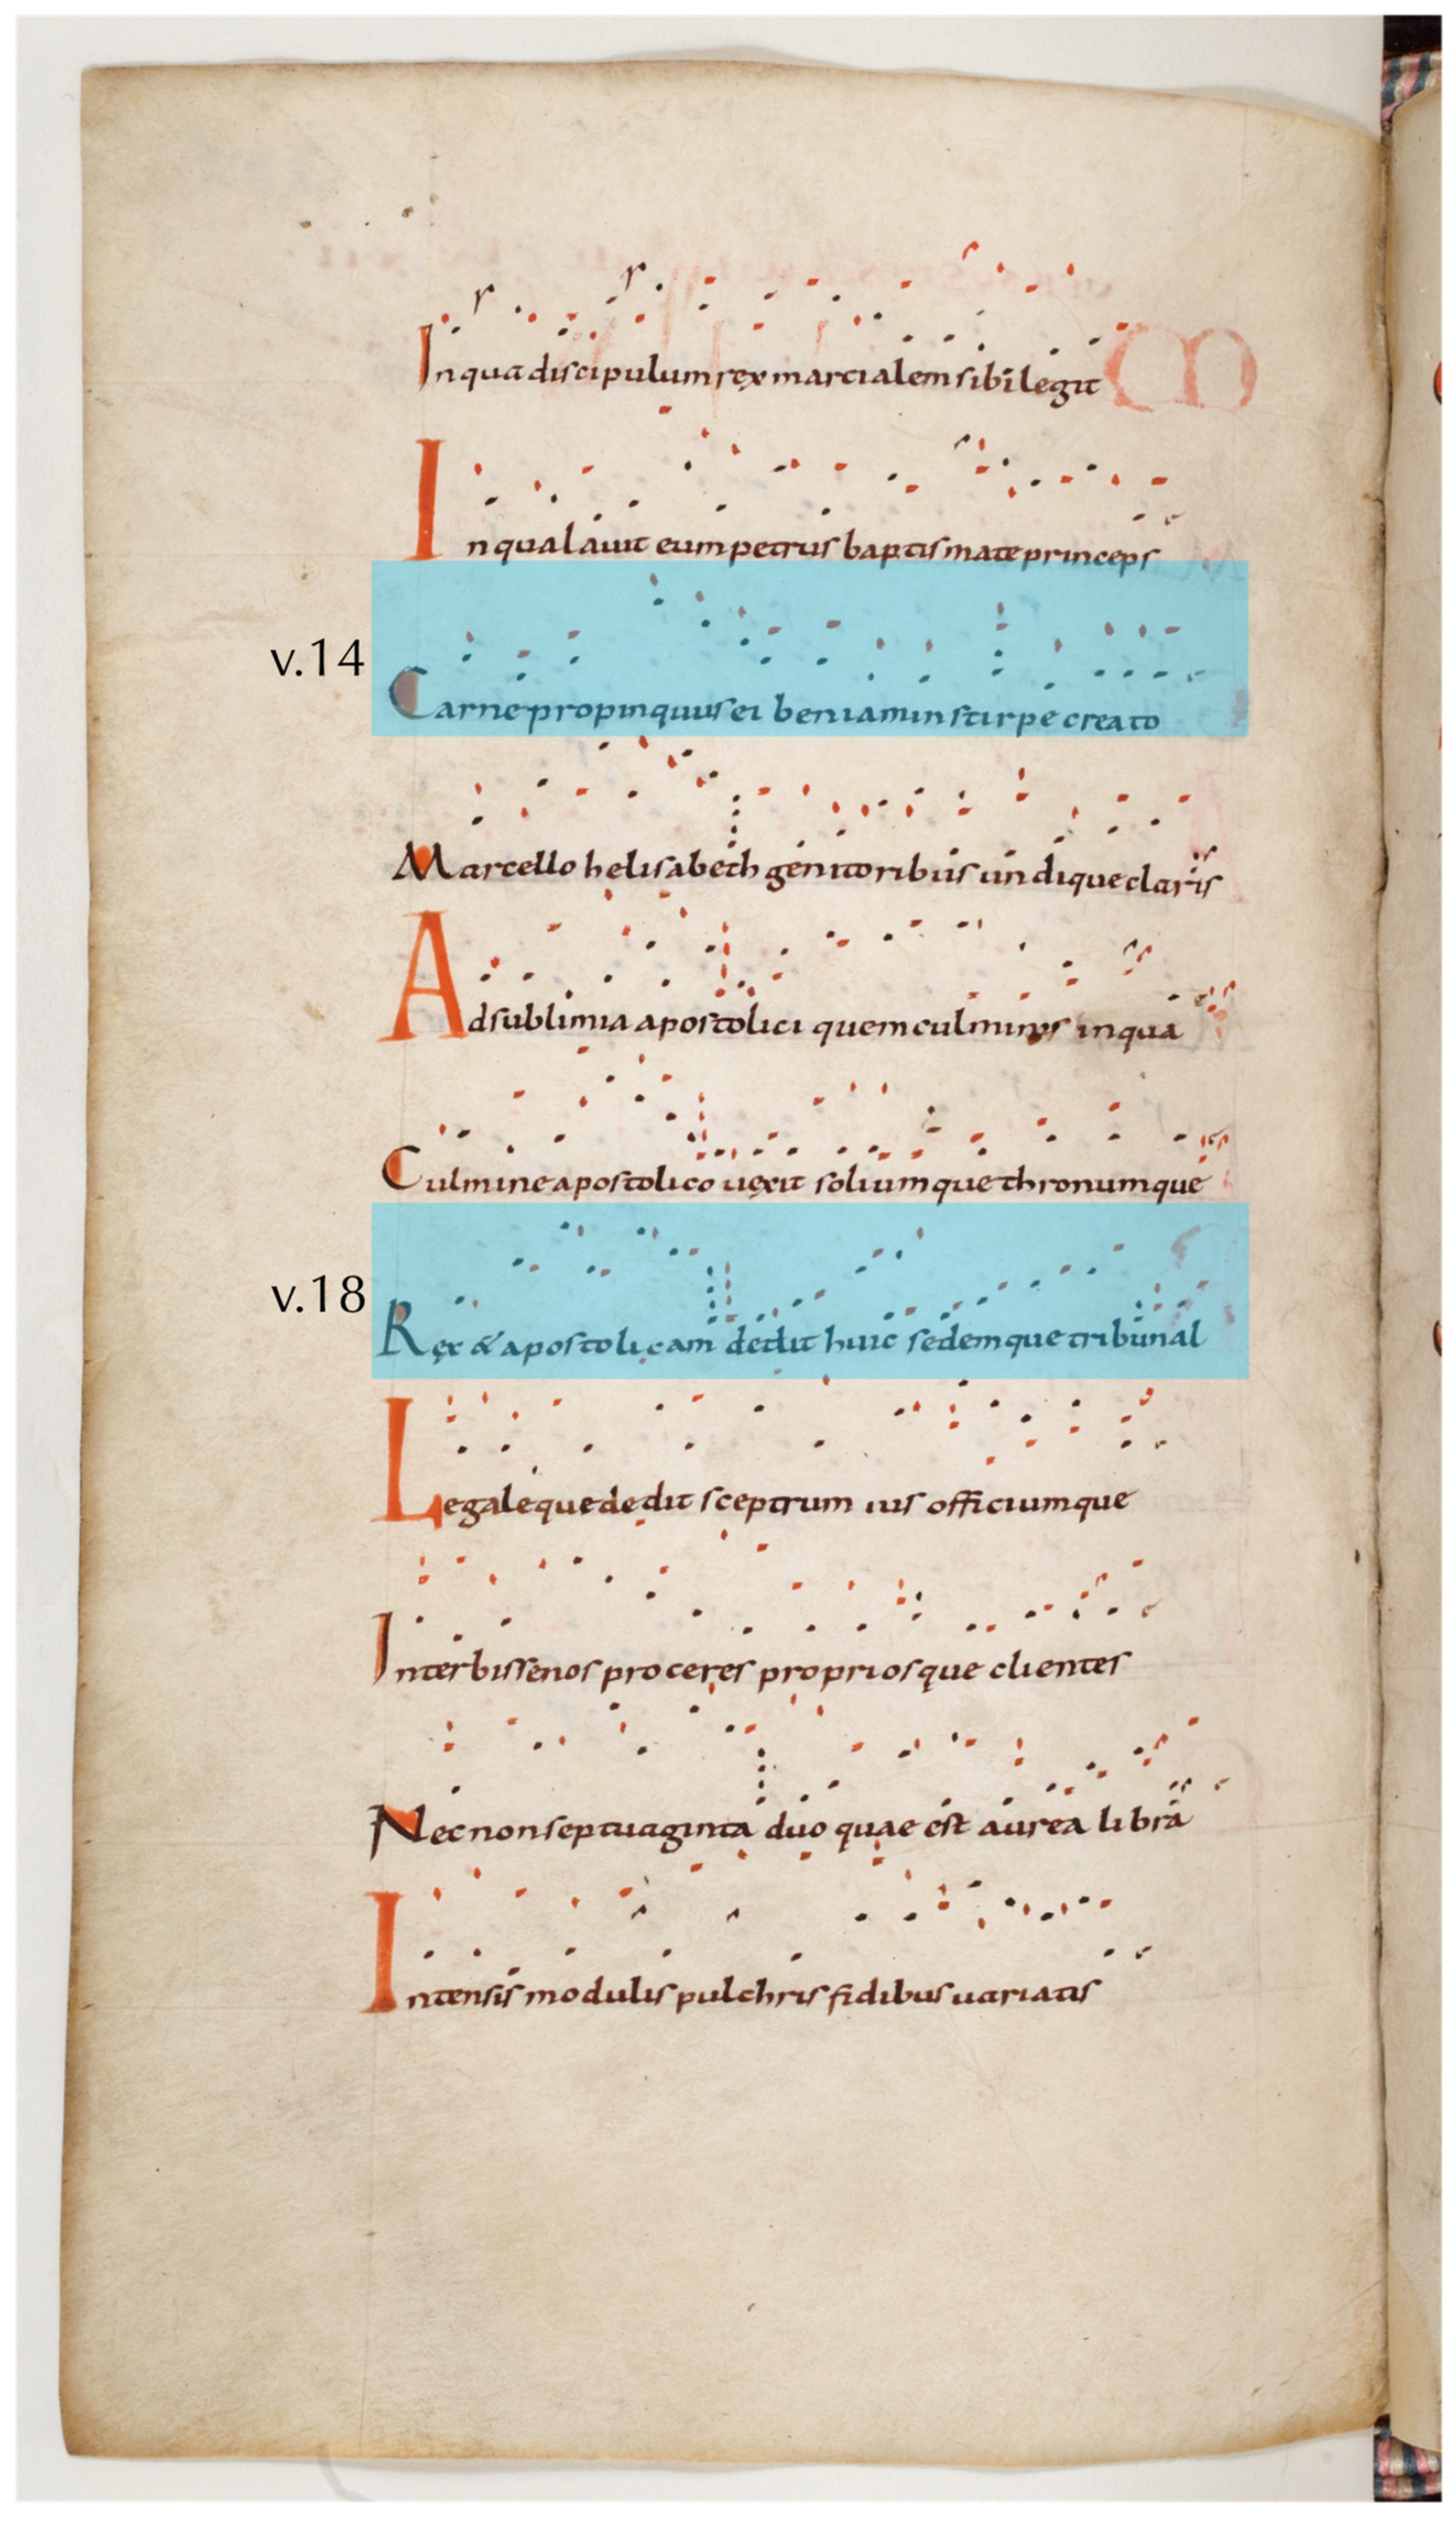 In qua discipulum rex marcialem sibi legit M
In qua lauit eum petrus baptismate princeps
v.14
Carne propinquus ei beniamin stirpe creato
Marcello helisabeth genitoribus undique claris
Ad sublimia apostolici quem culminis in qua
Culmine apostolico uexit soliumque thronumque
v.18
Rex & apostolicam dedit huic sedemque tribunal
Legaleque dedit sceptrum ius officiumque
Inter bissenos proceres propriosque clientes
Nec non septuaginta duo quae est aurea libra
Intensis modulis pulchris fidibus uariatis